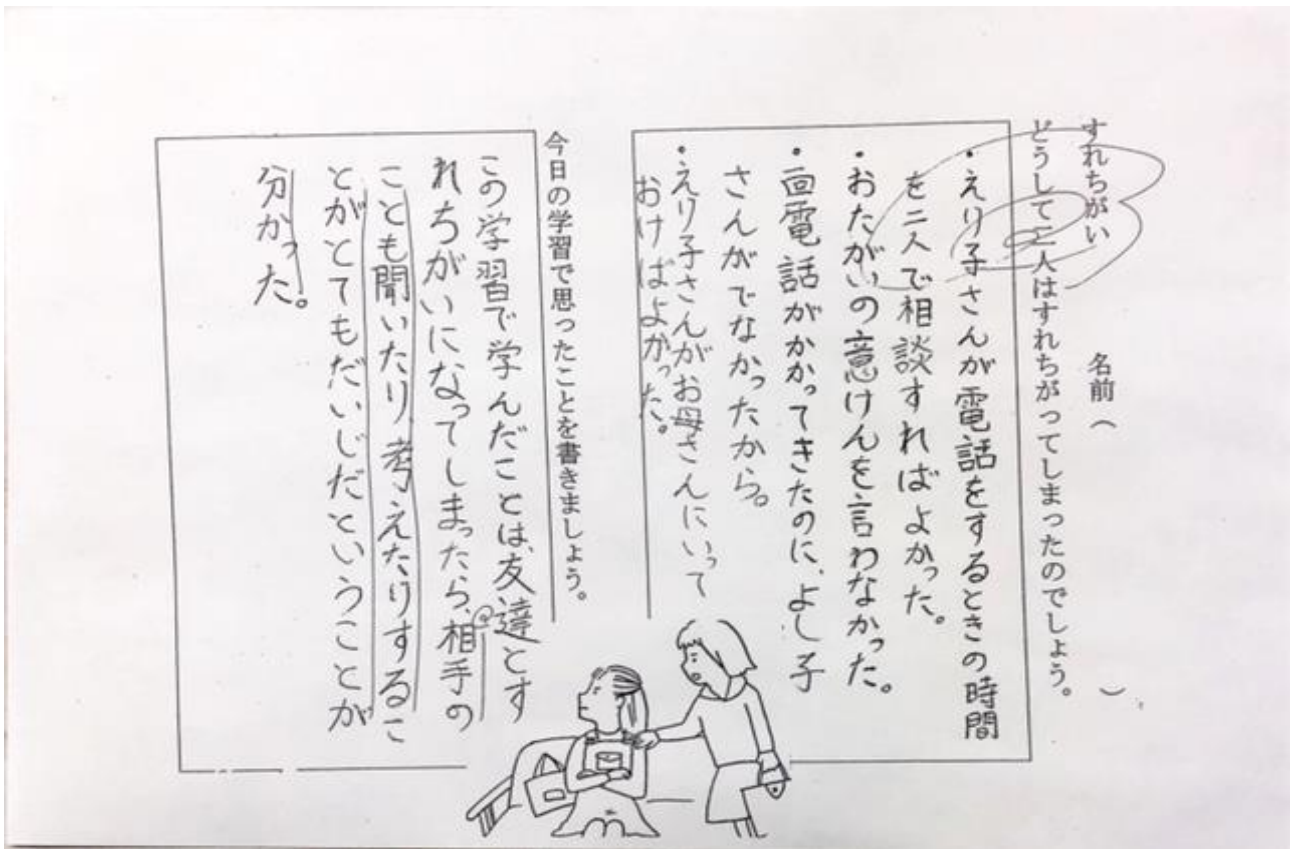 すれちがい　名前（　　）
どうして二人はすれちがってしまったのでしょう。
・えり子さんが電話をするときの時間
を二人で相談すればよかった。
・おたがいの意けんを言わなかった。
・回電話がかかってきたのに、よし子
さんがでなかったから。
・えり子さんがお母さんにいって
おけばよかった。
今日の学習で思ったことを書きましょう。
この学習で学んだことは、友達とす
れちがいになってしまったら、相手の
ことも聞いたり、考えたりするこ
とがとてもだいじだということが
分かった。